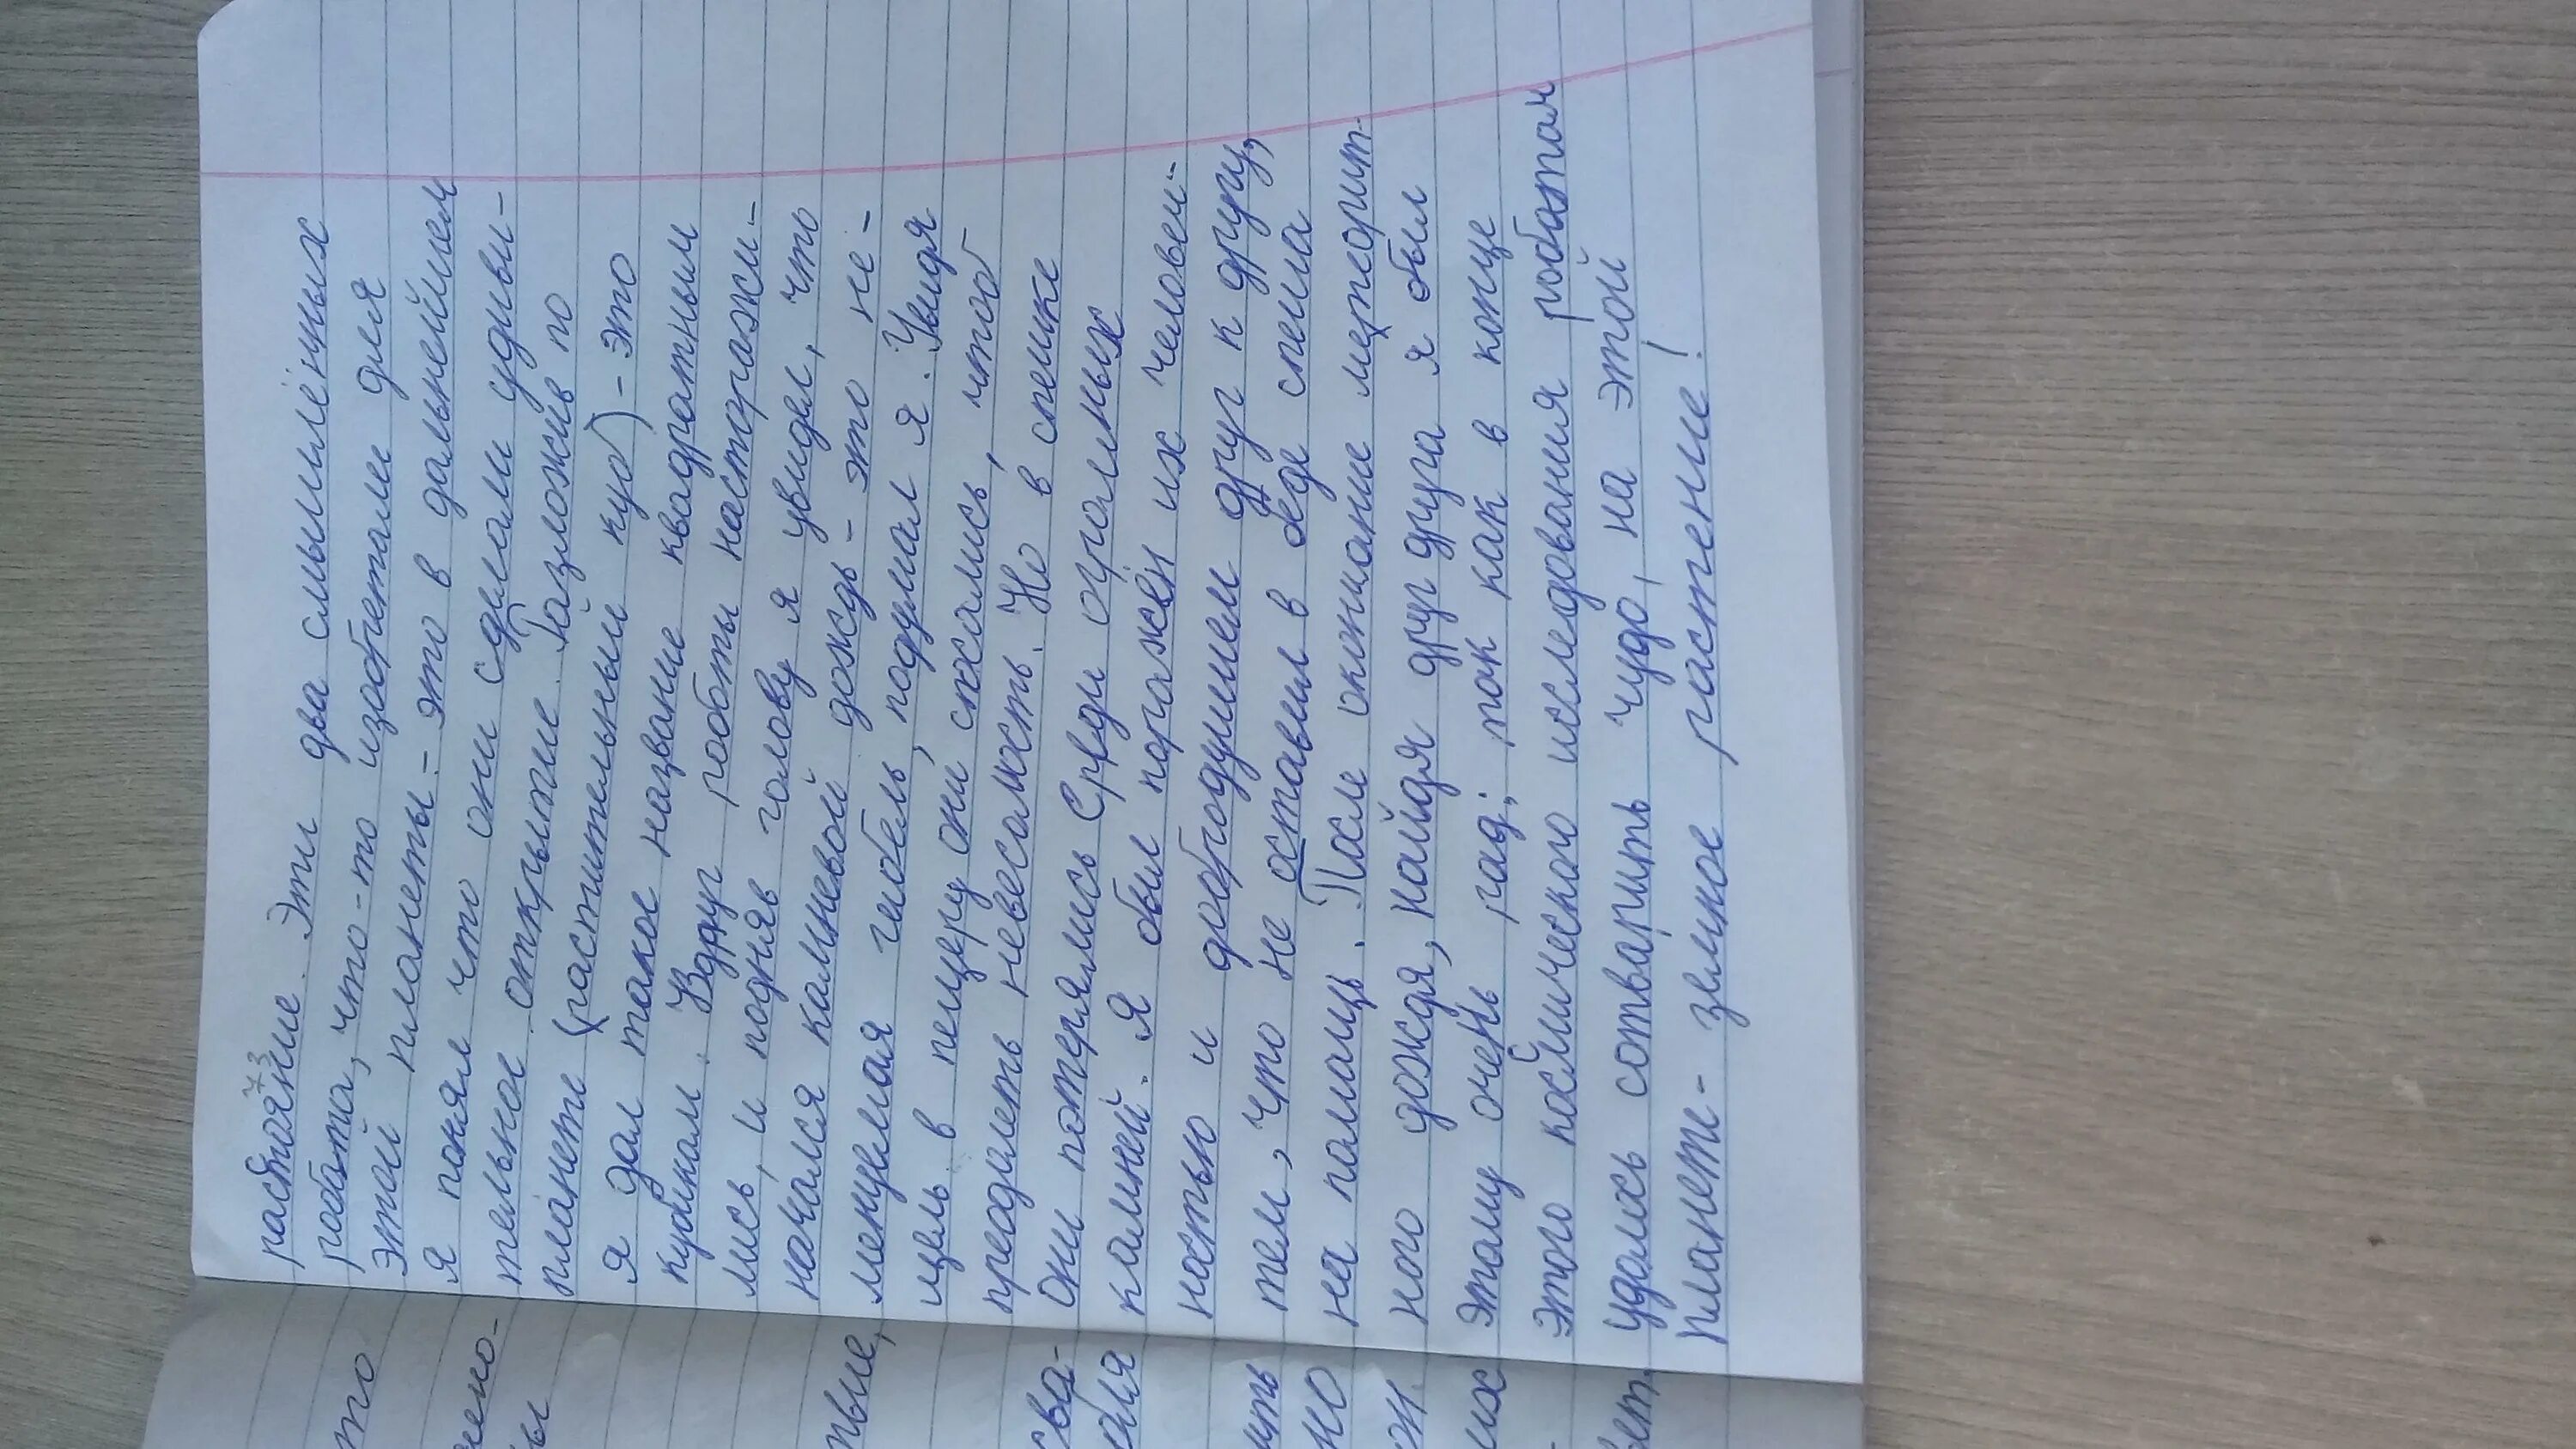 растояние. Эти два смышлённых
робота, что-то изобретали для
этой планеты - это в дальнейшем
я понял что они сделали удиви-
тельное открытие. Разложив по
планете (растительный куб) - это
я дал такое название квадратным
кубикам. Вдруг роботы насторожи-
лись, и подняв голову я увидел, что
начался камневой дождь - это не-
менуемая гибель, подумал я. Увидя
щель в пещеру они спхались, чтоб
преодалеть невесомость. Но в спешке
они потерялись Среди огромных
камней. Я был поражён их человеч-
ностью и добродушием друг к другу,
тем, что не оставили в беде спеша
на помощь. После окончание метеорит-
ного дождя, найдя друг друга я был
этому очень рад; так как в конце
этого космического исследования роботам
удалось сотварить чудо, на этой
планете - земное растение!
то
ны
твие,
сва-
ить
но
их